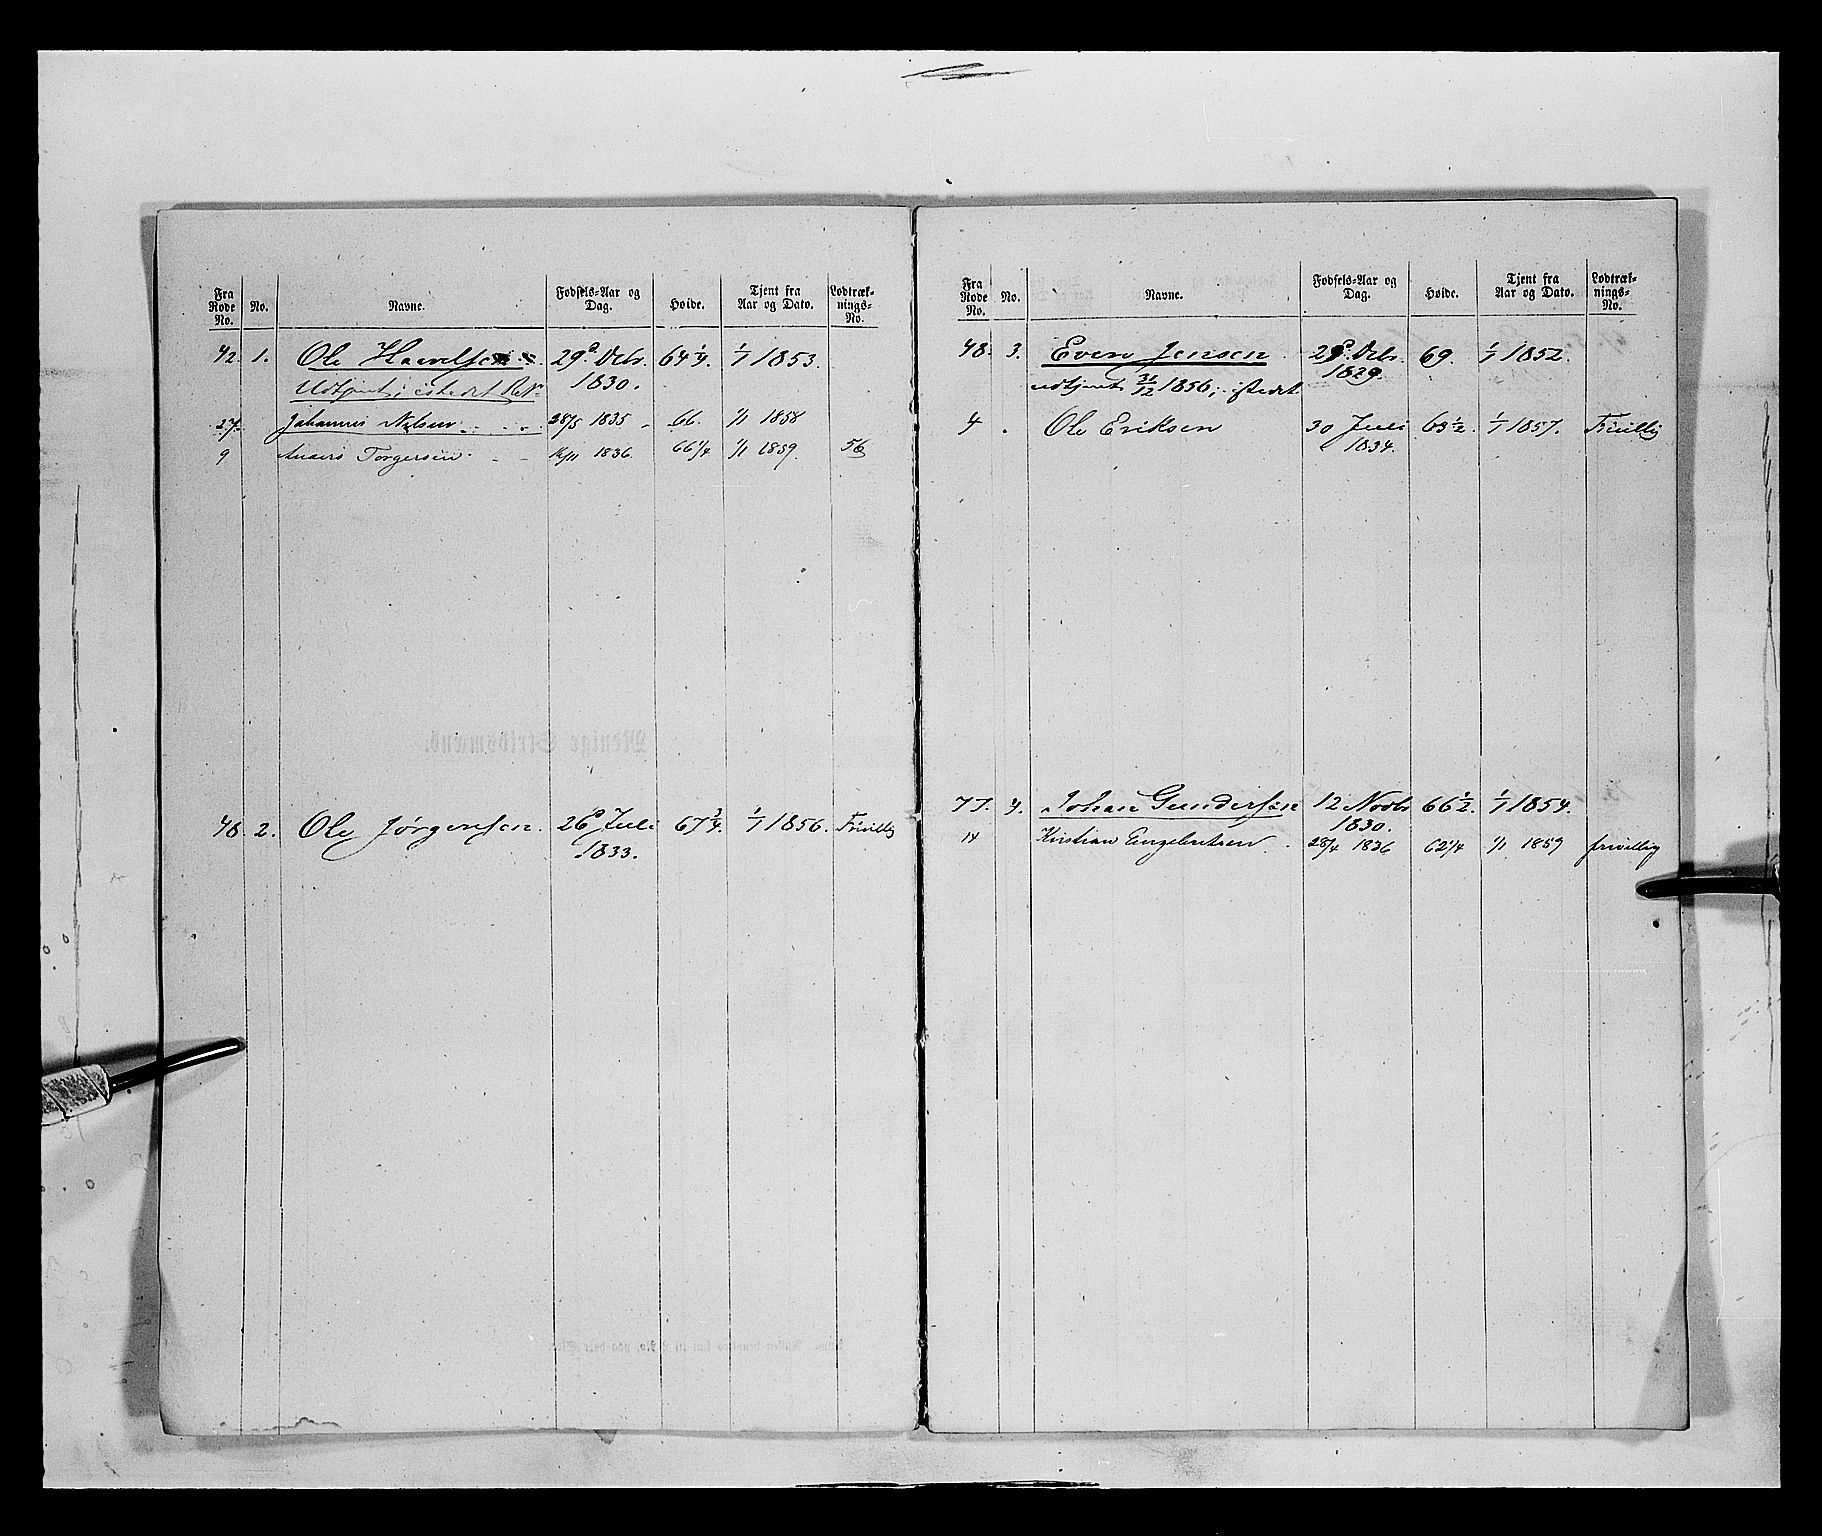 Fra Rode No. | No. | Navne. | Fødsels-Aar og Dag. | Høide. | Tjent fra Aar og Dato. | Lodtræk-nings-No.
42. 1. Ole 29de Debr. 64 1/4. 1/1 1853.
Udtjent, istedet 1830.
27. Johannes Nelsen 28/5 1835 66. 1/1 1858
9 Anders Torgersen 1836 66 1/4 1/1 1859. 56
Menige Feltsmænd.
48. 2. Ole Jørgensen. 26de Juli 67 3/4. 1/1 1856. Frivillig
1833.
Fra Rode No. | No. | Navne. | Fødsels-Aar og Dag. | Høide. | Tjent fra Aar og Dato. | Lodtræk-nings-No.
48. 3. Even Jensen Debr. 69. 1/1 1852.
1829.
udtjent 31/12 1856, istedet
4 Ole Eriksen 30 Juli 1/1 1857. Frivillig
1834.
77. 4. Johan Gundersen 12 Novbr 66 1/2. 1/1 1854.
1830.
14 Kristian Engebretsen 28/4 1836 62 1/4 1/1 1859 frivillig